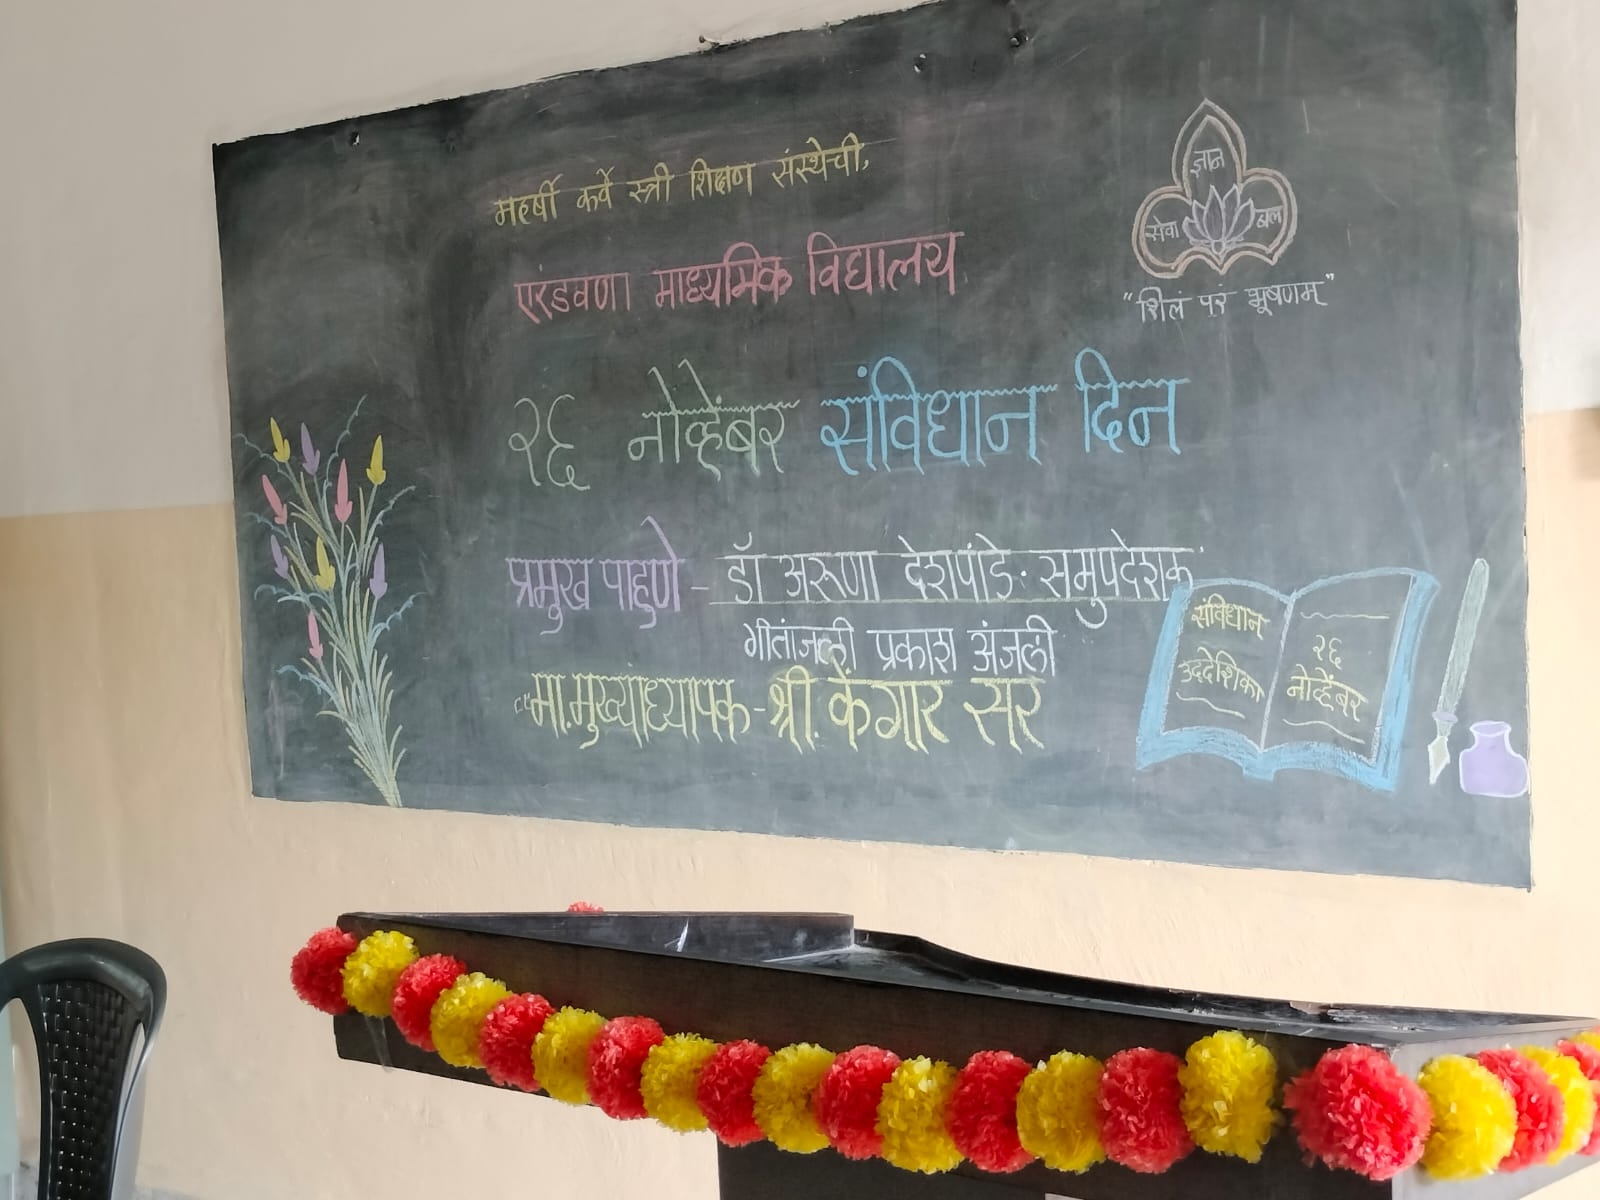 महर्षी कर्वे स्त्री शिक्षण संस्थेची,
एरंडवणा माध्यमिक विद्यालय
ज्ञान
सेवा बल
"शिलं परं भूषणम्"
२६ नोव्हेंबर संविधान दिन
प्रमुख पाहुणे - डॉ अरुणा देशपांडे. समुपदेशक
गीतांजली प्रकाश अंजली
मा. मुख्याध्यापक - श्री. केंगार सर
संविधान
उद्देशिका
२६
नोव्हेंबर